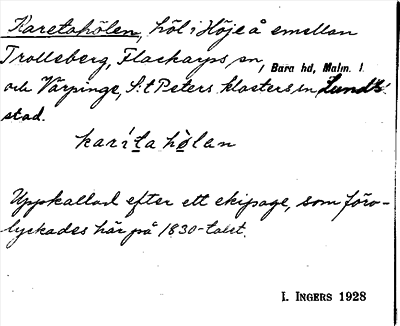 Karetahölen, höl i Höje å emellan
Trolleberg, Flackarps sn, Bara hd, Malm. l.
och Värpinge, S:t Peters klosters sn Lunds
stad.
karita hölan
Uppkallad efter ett ekipage, som föro-
lyckades här på 1830-talet.
I. INGERS 1928